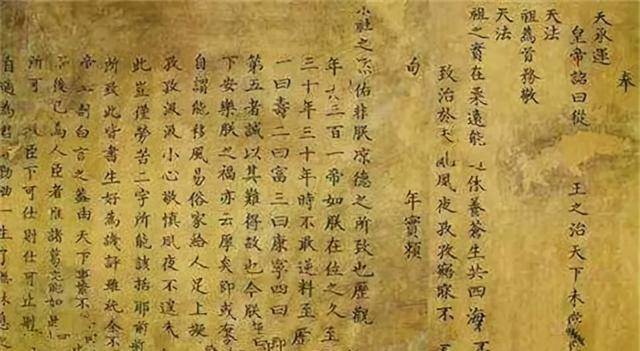 奉
天承運
皇帝詔曰從 王之治天下未嘗
天法
祖為首務敬
天法
祖之實在柔遠能 休養蒼生共四海
致治於未亂夙夜孜孜寤寐不
旬 年實賴
社之 佑非朕涼德之所致也歷觀
年 三百一帝如朕在位之久至
三十年三十年時不敢逆料至
一曰壽二曰富三曰康寧四曰
第五者誠以其難得故也今朕年
下安樂朕之福亦云厚矣即或有
自謂能移風易俗家給人足上擬
孜孜汲汲小心敬慎夙夜不遑未
此豈僅勞苦二字所能該括耶前
所致此皆書生好為譏評雖純全
帝 剖白言之蓋由天下事繁不
後已為人臣者惟諸葛亮能如是
所可 諉臣下可仕則仕可止則
自適為君 勤劬一生了無休息之